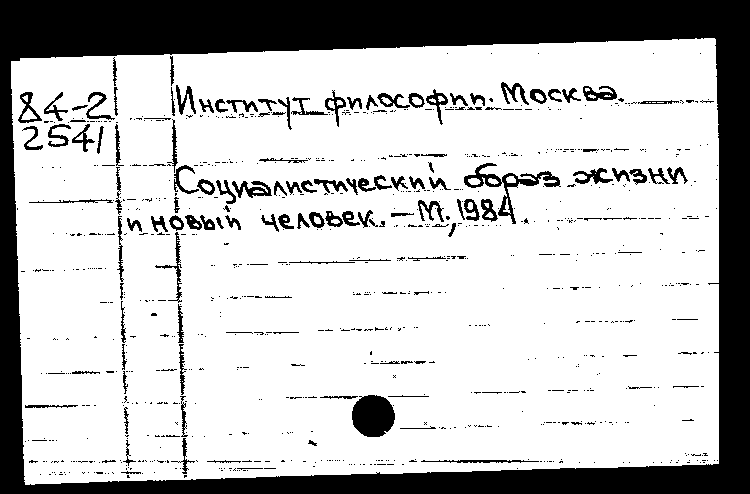 84-2
2541
Институт философии. Москва.
Социалистический образ жизни
и новый человек. – М., 1984.